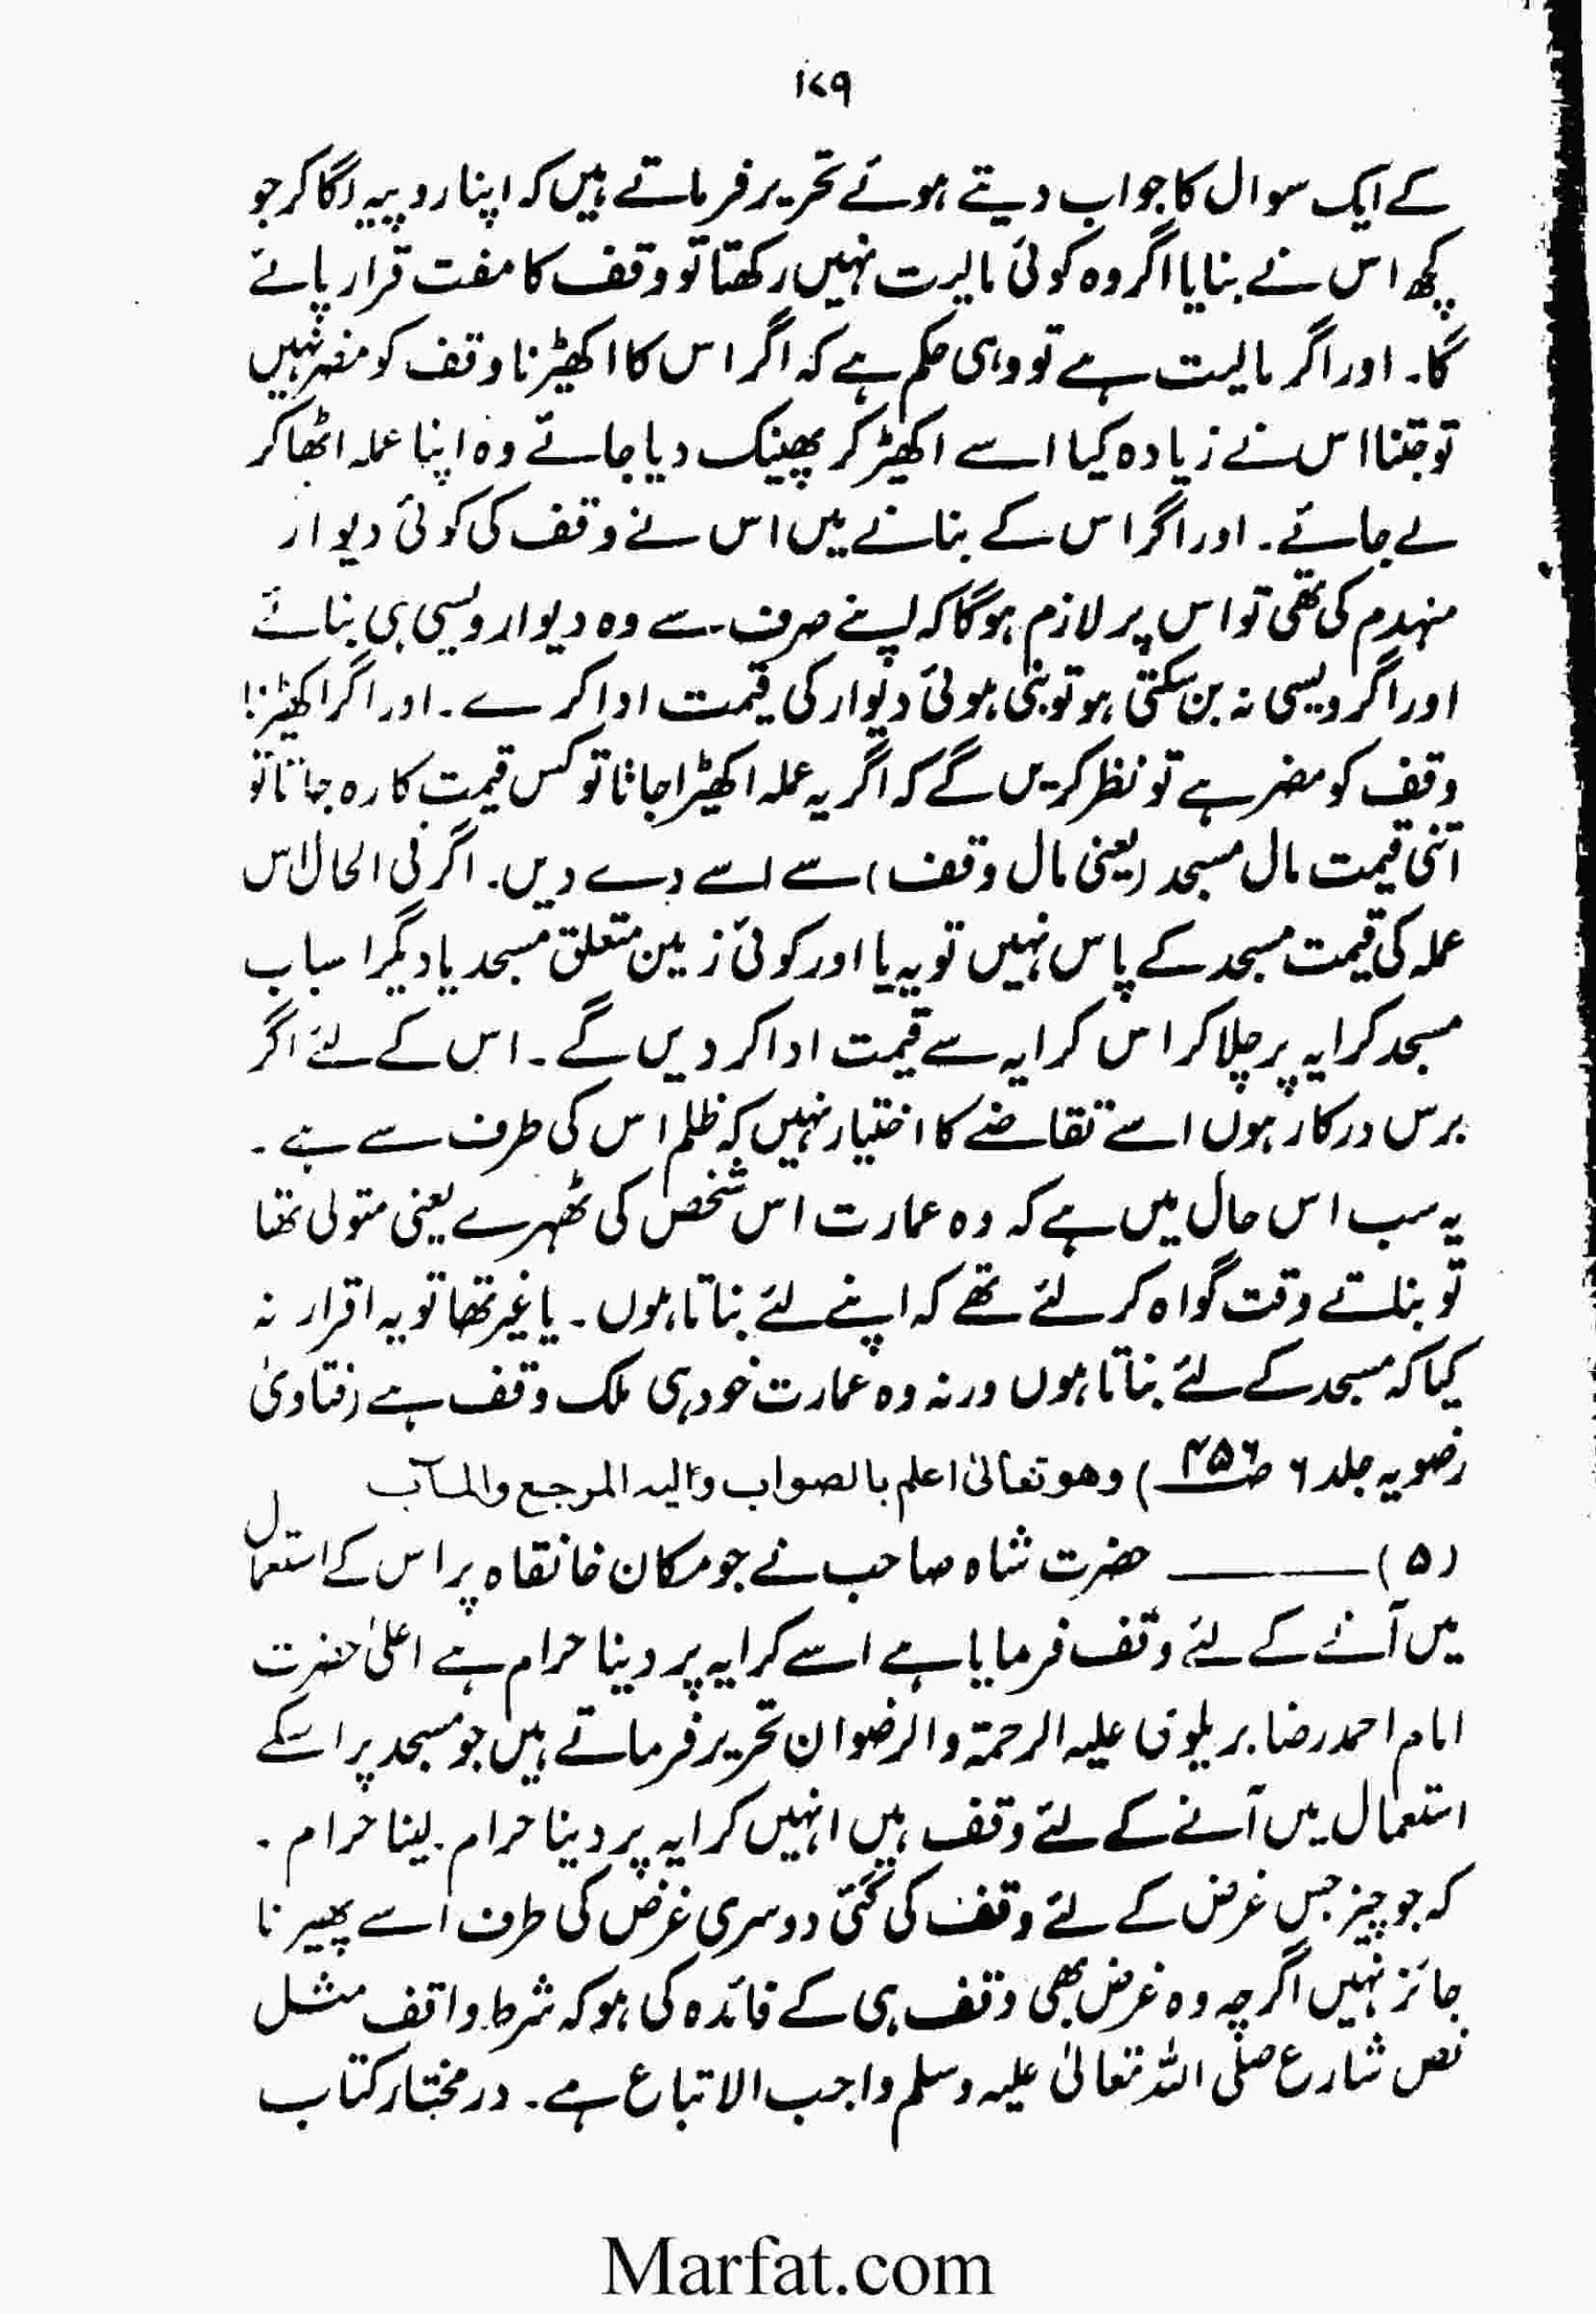 ۱۷۹
کے ایک سوال کا جواب دیتے ہوئے تحریر فرماتے ہیں کہ اپنا روپیہ لگا کر جو
کچھ اس نے بنایا اگر وہ کوئی مالیت نہیں رکھتا تو وقف کا مفت قرار پائے
گا۔ اور اگر مالیت ہے تو وہی حکم ہے کہ اگر اس کا اکھیڑنا وقف کو مضر نہیں
تو جتنا اس نے زیادہ کیا اسے اکھیڑ کر پھینک دیا جائے وہ اپنا عملہ اٹھا کر
لے جائے۔ اور اگر اس کے بنانے میں اس نے وقف کی کوئی دیوار
منہدم کی تھی تو اس پر لازم ہوگا کہ اپنے صرف سے وہ دیوار ویسی ہی بنائے
اور اگر ویسی نہ بن سکتی ہو تو بنی ہوئی دیوار کی قیمت ادا کرے۔ اور اگر اکھیڑنا
وقف کو مضر ہے تو نظر کریں گے کہ اگر یہ عملہ اکھیڑا جاتا تو کس قیمت کا رہ جاتا تو
اتنی قیمت مال مسجد (یعنی مال وقف) سے اسے دے دیں۔ اگر فی الحال اس
عملہ کی قیمت مسجد کے پاس نہیں تو یہ یا اور کوئی زمین متعلق مسجد یا دیگر اسباب
مسجد کرایہ پر چلا کر اس کرایہ سے قیمت ادا کر دیں گے۔ اس کے لئے اگر
برس درکار ہوں اسے تقاضے کا اختیار نہیں کہ ظلم اس کی طرف سے ہے۔
یہ سب اس حال میں ہے کہ وہ عمارت اس شخص کی ٹھہرے یعنی متولی تھا
تو بناتے وقت گواہ کر لئے تھے کہ اپنے لئے بناتا ہوں۔ یا غیر تھا تو یہ اقرار نہ
کیا کہ مسجد کے لئے بناتا ہوں ورنہ وہ عمارت خود ہی ملک وقف ہے (فتاویٰ
رضویہ جلد ۶ ص ۴۵۶) وھو تعالیٰ اعلم بالصواب والیہ المرجع والمآب
(۵) ——— حضرت شاہ صاحب نے جو مکان خانقاہ پر اس کے استعمال
میں آنے کے لئے وقف فرمایا ہے اسے کرایہ پر دینا حرام ہے اعلیٰ حضرت
امام احمد رضا بریلوی علیہ الرحمۃ والرضوان تحریر فرماتے ہیں جو مسجد پر اسکے
استعمال میں آنے کے لئے وقف ہیں انہیں کرایہ پر دینا حرام۔ لینا حرام۔
کہ جو چیز جس غرض کے لئے وقف کی گئی دوسری غرض کی طرف اسے پھیرنا
جائز نہیں اگرچہ وہ غرض بھی وقف ہی کے فائدہ کی ہو کہ شرط واقف مثل
نص شارع صلی اللہ تعالیٰ علیہ وسلم واجب الاتباع ہے۔ درمختار کتاب
Marfat.com